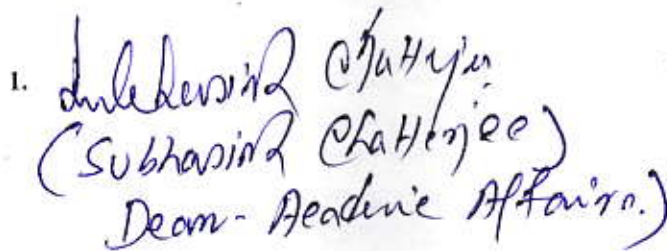 1. Subhasish Chatterjee
(Subhasish Chatterjee)
Dean - Academic Affairs.)